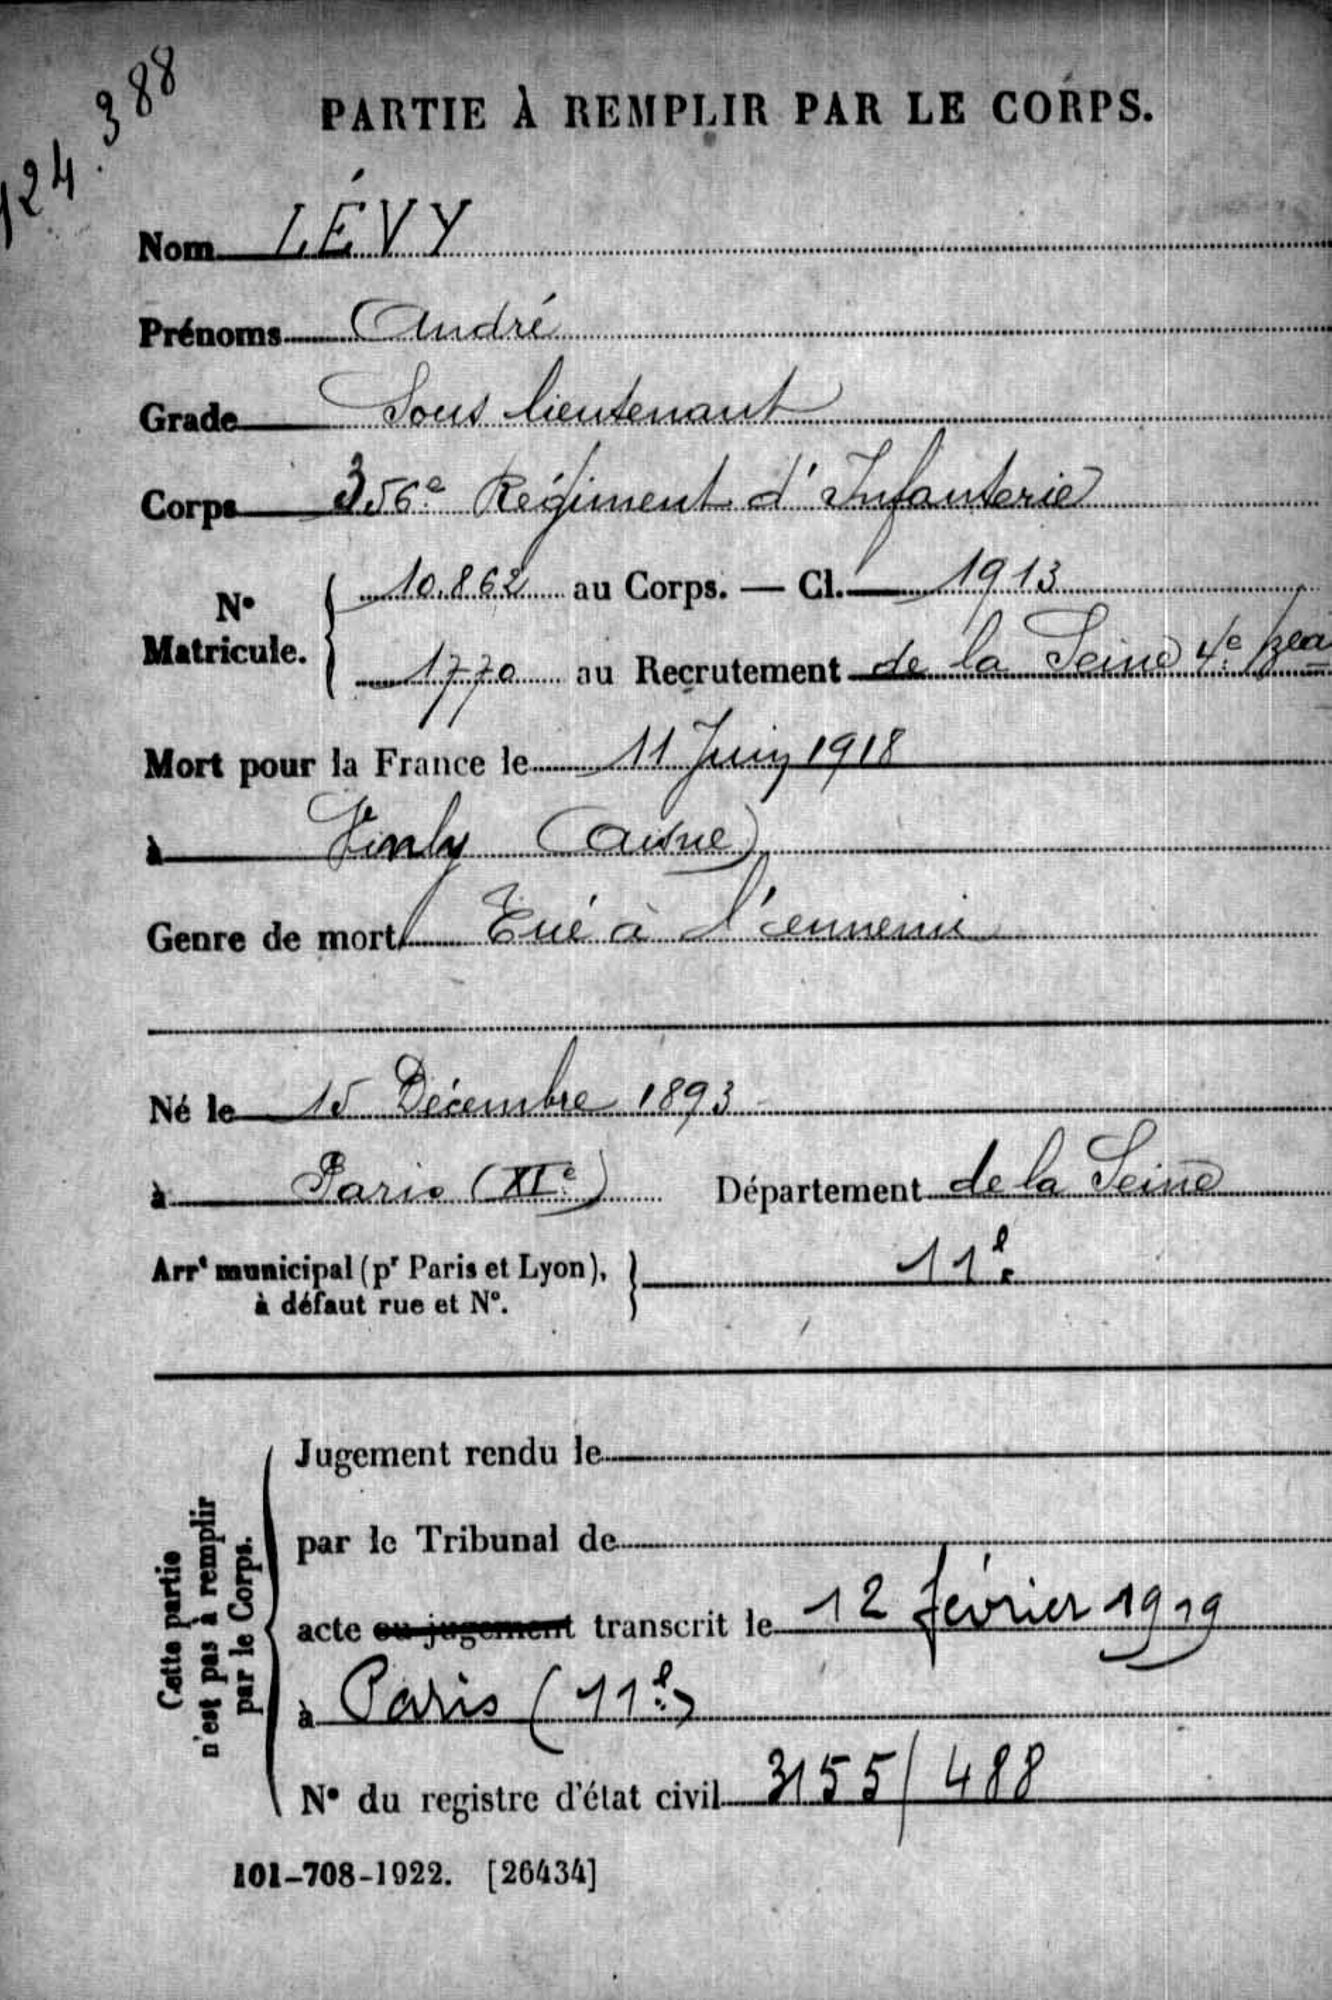 124.388
PARTIE À REMPLIR PAR LE CORPS.
Nom LÉVY
Prénoms André
Grade Sous lieutenant
Corps 356e Régiment d'Infanterie
N° Matricule.
10.862 au Corps. — Cl. 1913
1770 au Recrutement de la Seine 4e Beau
Mort pour la France le 11 Juin 1918
à Vinly (Aisne)
Genre de mort Tué à l'ennemi
Né le 15 Décembre 1893
à Paris (XIe) Département de la Seine
Arrt municipal (pr Paris et Lyon), 11e
à défaut rue et N°.
Cette partie
n'est pas à remplir
par le Corps.
Jugement rendu le
par le Tribunal de
acte ou jugement transcrit le 12 février 1919
à Paris (11e)
N° du registre d'état civil 3155/488
101-708-1922. [26434]